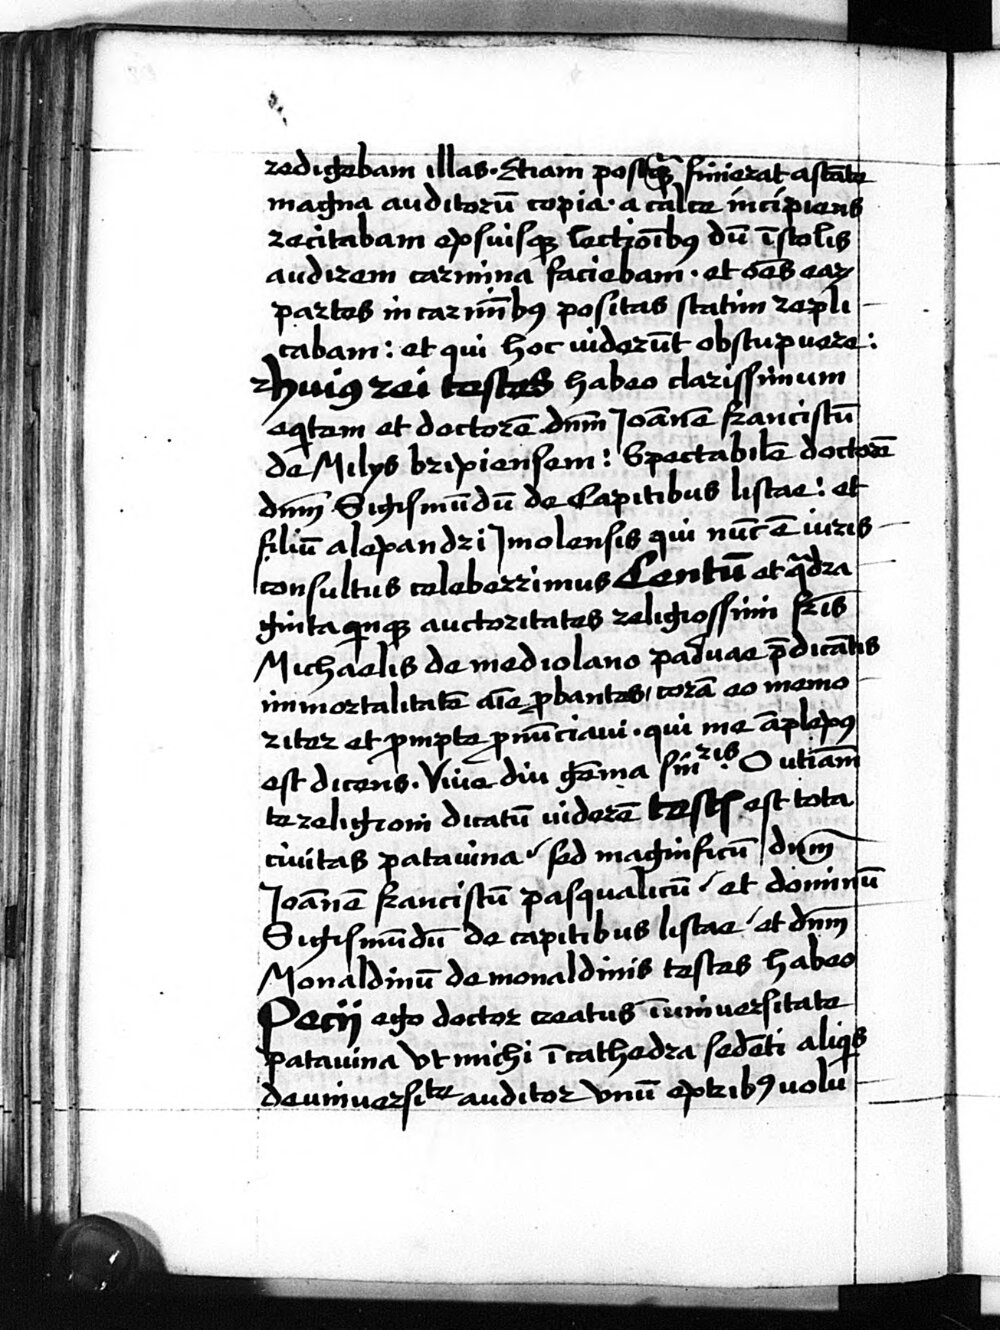 redigebam illas. Etiam postq̃ȝ finierat astāte
magna auditorū copia. a calce incipiens
recitabam eǫsuisqȝ lectiōibꝰ dū ī scolis
audirem carmina faciebam. et oēs eaꝝ
partes in carmībꝰ positas statim repli
cabam: et qui hoc uiderūt obstupuere:
huiꝰ rei testes habeo clarissimum
eqtem et doctorē. dnm̄ Joānē franciscū
de Milys brixiensem: Spectabilē doctorē
dnm̄ Sigismūdū de Capitibus listae: et
filiū alexandri Jmolensis qui nūc ē iuris
consultus celeberrimus Centū et qͣdra
ginta qinqȝ auctoritates religiossimi fr̄is
Michaelis de mediolano paduae p̄dicātis
immortalitatē aīe ꝓbantes, corā eo memo
riter et ꝓmpte ꝓnūciaui. qui me āplexꝰ
est dicens. Viue diu gēma sinͬⁱˢ. O utiā
te religioni dicatū uiderē testis est tota
ciuitas patauina / sed magnificū dnm̄
Joānē franciscū pasqualicū / et dominū
Sigismūdū de capitibus listae / et dnm̄
Monaldinū de monaldinis testes habeo
Petij ego doctor creatus ī uniuersitate
patauina vt michi ī cathedra sedēti aliqis
de uniuersite auditor vnū ex tribꝰ uolu